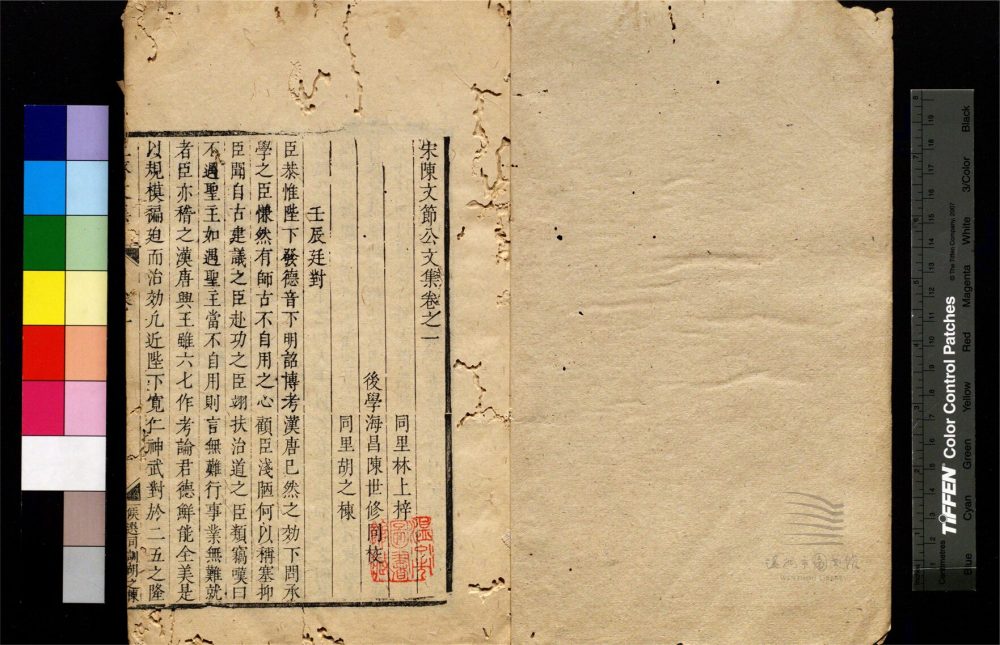 宋陳文節公文集卷之一
同里林上梓
後學海昌陳世修同校
同里胡之棟
壬辰廷對
臣恭惟陛下發德音下明詔博考漢唐已然之効下問承
學之臣慨然有師古不自用之心顧臣淺陋何以稱塞抑
臣聞自古建議之臣赴功之臣翊扶治道之臣類竊嘆曰
不遇聖王如遇聖主當不自用則言無難行事業無難就
者臣亦稽之漢唐興王雖六七作考論君德鮮能全美是
以規模褊迫而治効几近陛下寬仁神武對於二五之隆
候選司訓胡之棟
溫州市圖書館
WENZHOU LIBRARY
TIFFEN Color Control Patches
© The Tiffen Company, 2007
Centimetres
Inches
Blue
Cyan
Green
Yellow
Red
Magenta
White
3/Color
Black